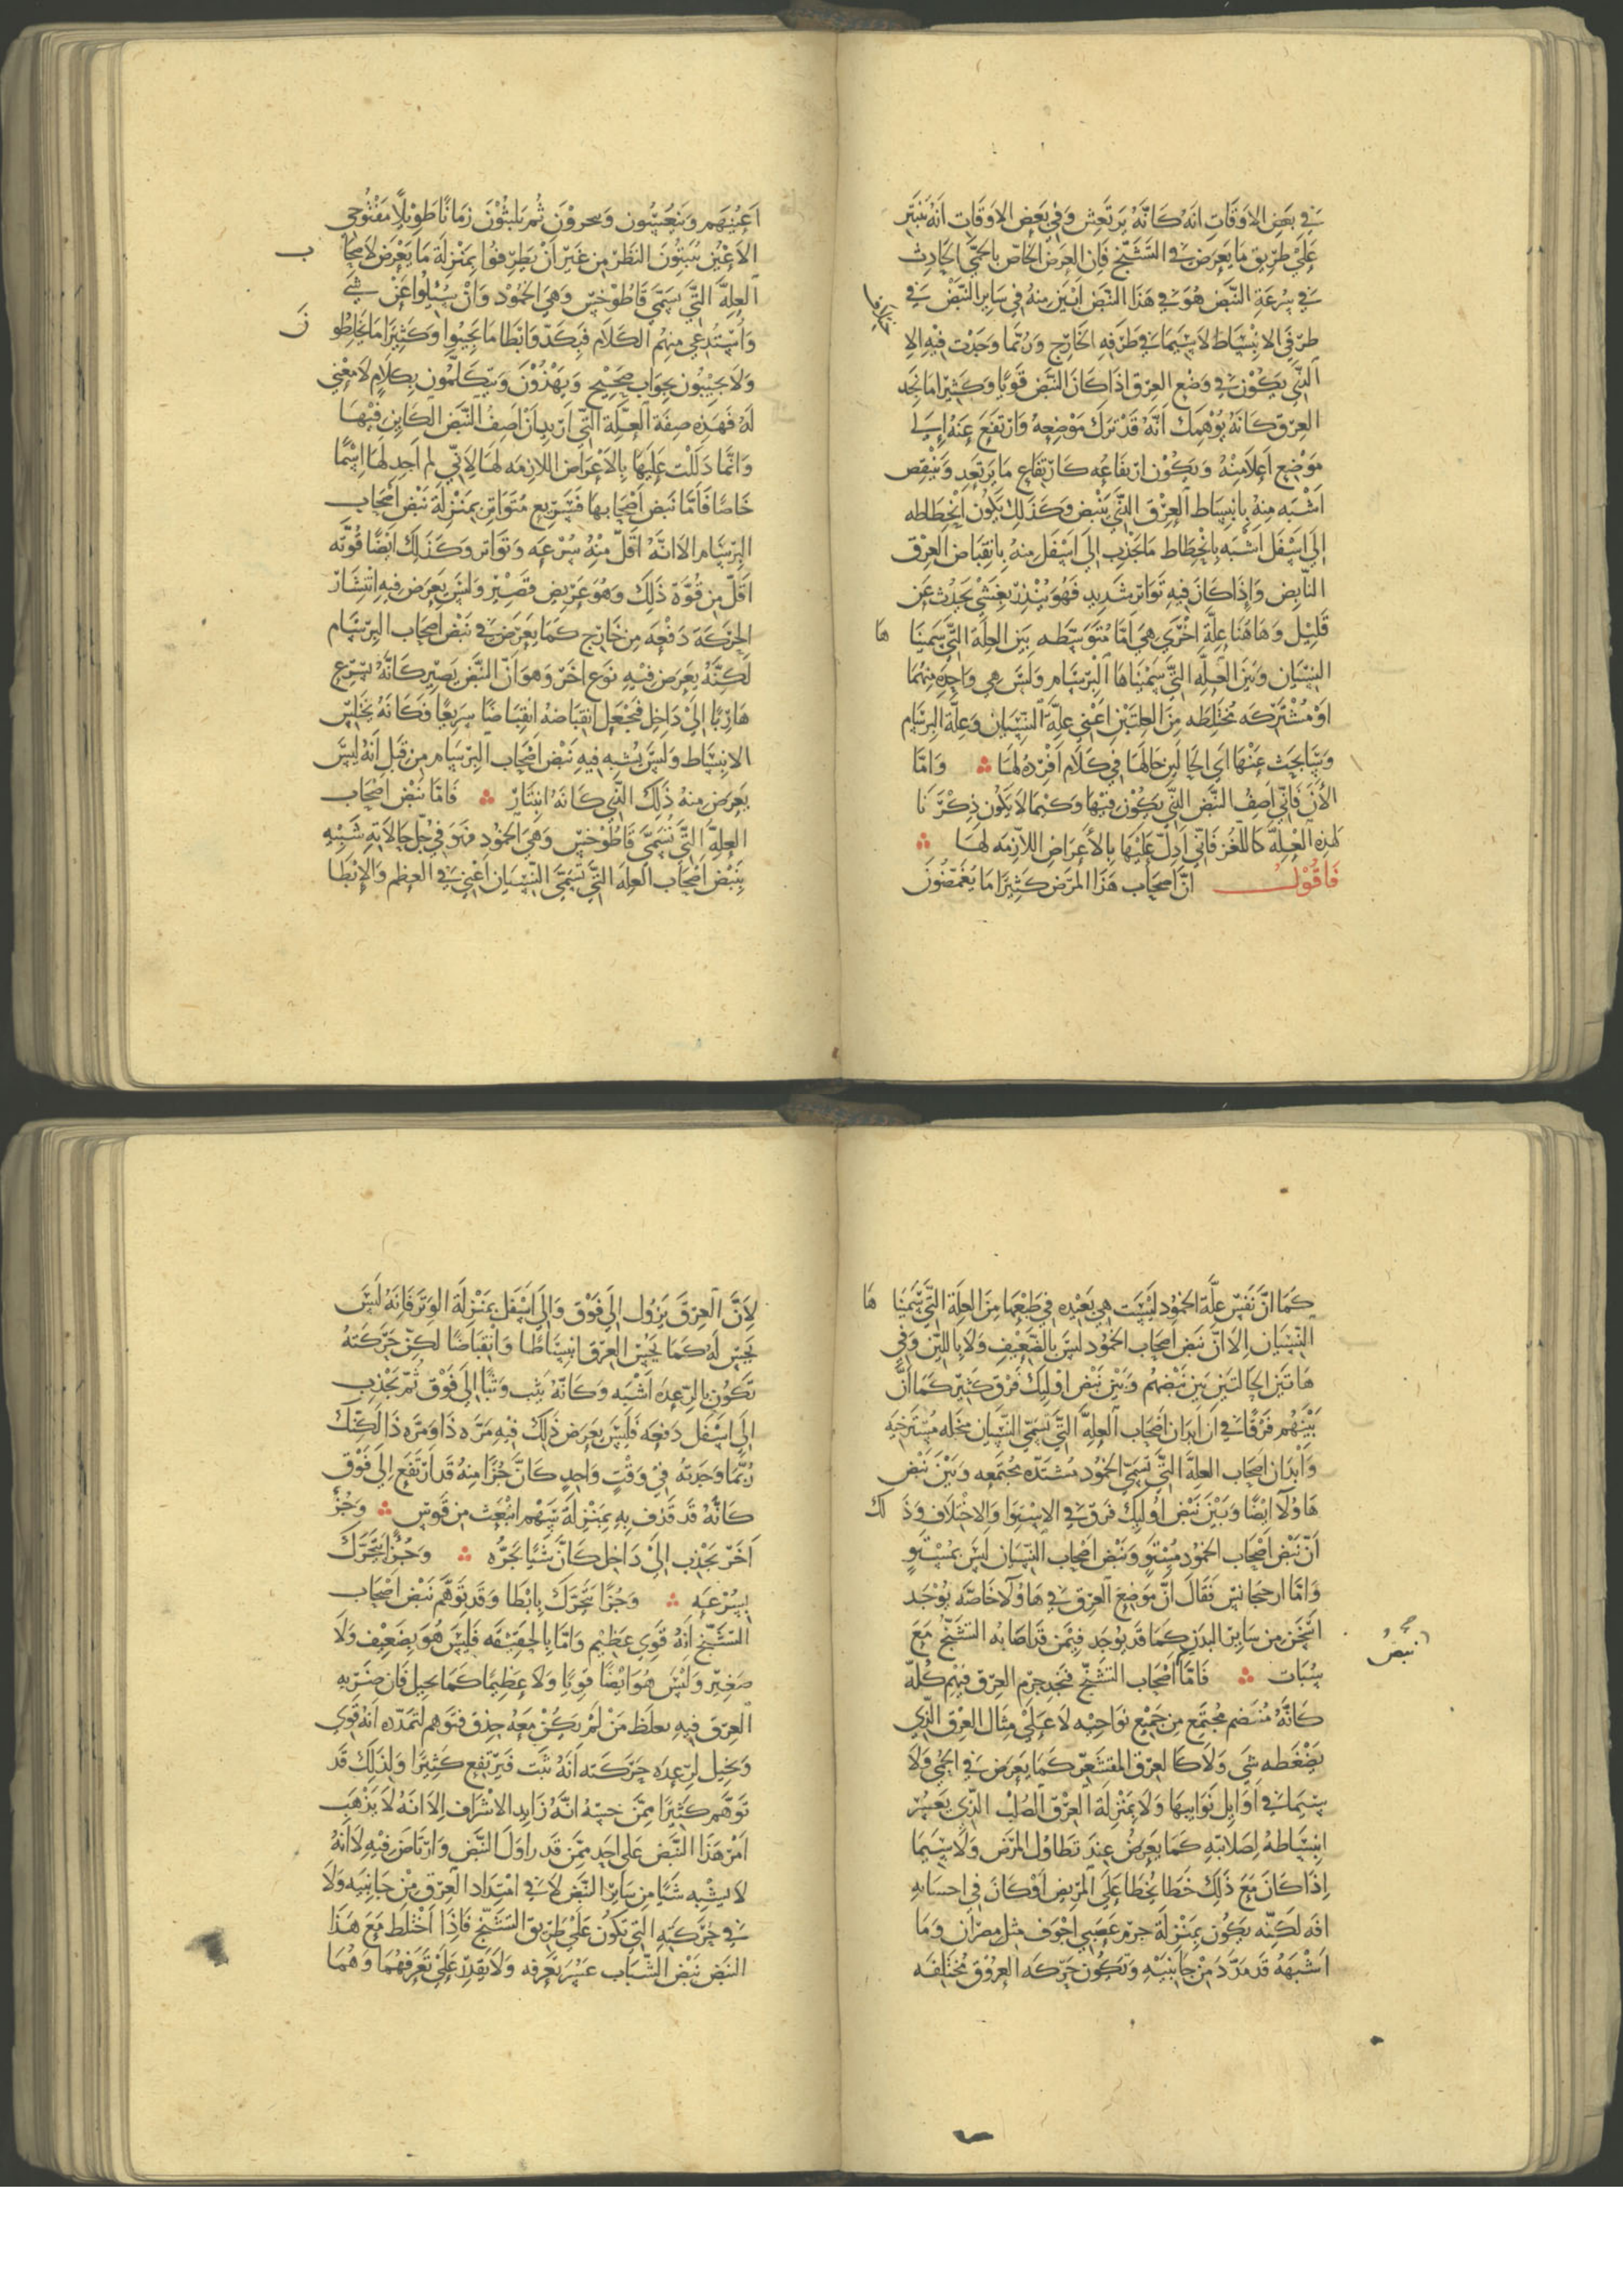 في بعض الاوقات انه كانه يرتعش وفي بعض الاوقات انه ينبتر
على طريق ما يعرض في التشنج فان العرض الخاص بالحمى الحادث
في سرعة النبض هو في هذا النبض ابين منه في ساير النبض في
طرفي الانبساط لا سيما في طرفه الخارج وربما وجدت فيه الا
الذي يكون في وضع العرق اذا كان النبض قويا وكثيرا ما تجد
العرق كانه يوهمك انه قد ترك موضعه وارتفع عنه الى
موضع اعلا منه ويكون ارتفاعه كارتفاع ما يرتعد وينقص
اشبه منه بانبساط العرق الذي ينبض وكذلك يكون انحطاطه
الى اسفل اشبه بانحطاط ما يجذب الى اسفل منه بانقباض العرق
النابض واذا كان فيه تواتر شديد فهو ينذر بغشي يحدث عن
قليل وهاهنا علة اخرى هي اما متوسطه بين العلة التي سمينا ها
النسيان وبين العله التي سميناها البرسام وليس هي واحدة منهما
او مشتركه مختلطه من العلتين اعني علة النسيان وعلة البرسام
وسابحث عنها اي الحالين حالها في كلام افرده لها واما
الان فاني اصف النبض الذي يكون فيها وكيما لا يكون ذكرنا
لهذه العله كاللغز فاني ادل عليها بالاعراض اللازمه لها
فاقول ان اصحاب هذا المرض كثيرا ما يغمضون
اعينهم وينعسون ثم يلبثون زمانا طويلا مفتوحي
الاعين يثبتون النظر من غير ان يطرفوا بمنزلة ما يعرض لاصحا ب
العله التي تسمى قاطوخس وهي الجمود وان سيلوا عن شي
واستدعي منهم الكلام فبكد وابطا ما يجيبوا وكثيرا ما يخلطو ن
ولا يجيبون بجواب صحيح ويهذون ويتكلمون بكلام لا معنى
له فهذه صفة العلة التي اريد ان اصف النبض الكاين فيها
وانما دللت عليها بالاعراض اللازمه لها لاني لم اجد لها اسما
خاصا فاما نبض اصحابها فسريع متواتر بمنزلة نبض اصحاب
البرسام الا انه اقل منه سرعه وتواتر وكذلك ايضا قوته
اقل من قوة ذلك وهو عريض قصير وليس يعرض فيه انتشار
الحركة دفعه من خارج كما يعرض في نبض اصحاب البرسام
لكنه يعرض فيه نوع اخر وهو ان النبض يصير كانه يسرع
هاربا الى داخل فيجعل انقباضه انقباضا سريعا فكانه يختلس
الانبساط وليس يشبه فيه نبض اصحاب البرسام من قبل انه ليس
يعرض منه ذلك الذي كانه انبتار فاما نبض اصحاب
العله التي تسمى قاطوخس وهي الجمود فهو في جل حالاته شبيه
بنبض اصحاب العله التي تسمى النسيان اعني في العظم والابطا
كما ان نفس علة الجمود ليست هي بعيده في طبعها من العلة التي سمينا ها
النسيان الا ان نبض اصحاب الجمود ليس بالضعيف ولا باللين وفي
هاتين الحالتين بين نبضهم وبين نبض اوليك فرق كثير كما ان
بينهم فرقا في ان ابدان اصحاب العلة التي تسمى النسيان مسترخيه
وابدان اصحاب العلة التي تسمى الجمود مشتده مجتمعه وبين نبض
هاولا ايضا وبين نبض اوليك فرق في الاستوا والاختلاف وذ لك
ان نبض اصحاب الجمود مستو ونبض اصحاب النسيان ليس بمستو
واما ارجيجانس فقال ان موضع العرق في هاولا خاصه يوجد
اسخن من ساير البدن كما قد يوجد فيمن قد اصابه التشنج مع
سبات فاما اصحاب التشنج فتجد جرم العرق فيهم كله
كانه منضم مجتمع من جميع نواحيه لا على مثال العرق الذي
يضغطه شي ولا كالعرق المقشعر كما يعرض في الحمى ولا
سيما في اوايل نوايبها ولا بمنزلة العرق الصلب الذي يعسر
انبساطه لصلابته كما يعرض عند تطاول المرض ولا سيما
اذا كان مع ذلك خطا يخطا على المريض او كان في احشايه
افه لكنه يكون بمنزلة جرم عصبي اجوف مثل مصران وما
اشبهه قد مدد من جانبيه وتكون حركه العروق مختلفه
نبض
لان العرق يزول الى فوق والى اسفل بمنزلة الوتر فانه ليس
يحس له كما يحس العرق انبساطا وانقباضا لكن حركته
تكون بالرعده اشبه وكانه يثب وثبا الى فوق ثم يجذب
الى اسفل دفعه فليس يعرض ذلك فيه مره ذا ومره ذا لكنك
ربما وجدته في وقت واحد كان جزا منه قد ارتفع الى فوق
كانه قد قذف به بمنزلة سهم انبعث من قوس وجز
اخر يجذب الى داخل كان شيا يجره وجزا يتحرك
بسرعه وجزا يتحرك بابطا وقد توهم نبض اصحاب
التشنج انه قوي عظيم واما بالحقيقه فليس هو بضعيف ولا
صغير وليس هو ايضا قويا ولا عظيما كما يخيل فان ضربه
العرق فيه يغلط من لم يكن معه حذق فتوهم لتمدده انه قوي
ويخيل لرعده حركته انه يثب فيرتفع كثيرا ولذلك قد
توهم كثيرا ممن جسه انه زايد الاشراف الا انه لا يذهب
امر هذا النبض على احد ممن قد زاول النبض وارتاض فيه لانه
لا يشبه شيا من ساير النبض لا في امتداد العرق من جانبيه ولا
في حركته التي تكون على طريق التشنج فاذا اختلط مع هذا
النبض نبض السبات عسر تعرفه ولا يقدر على تعرفهما وهما